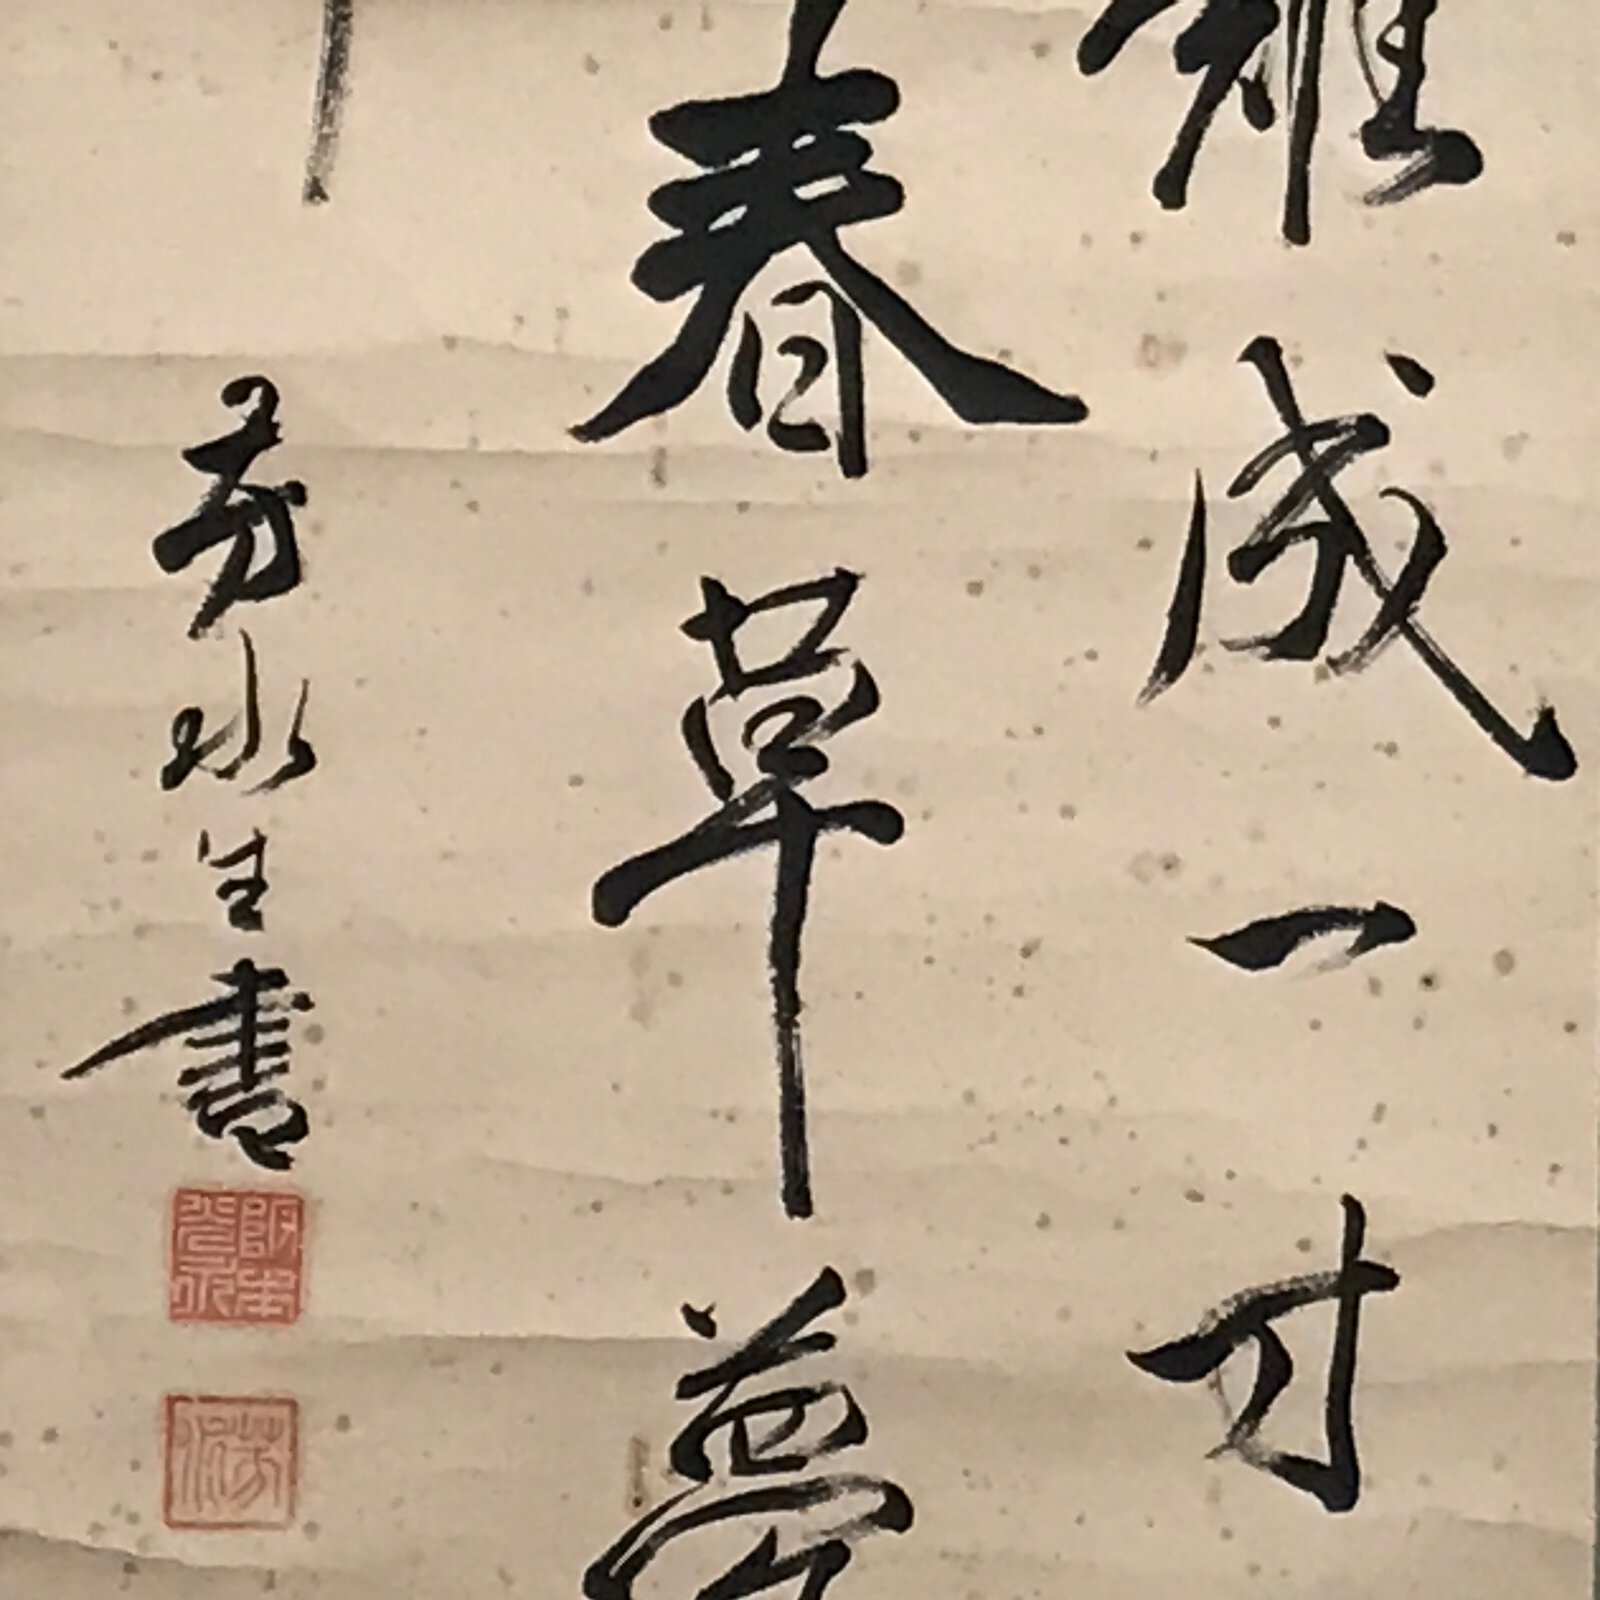 難成一寸
春草夢
芳水生書